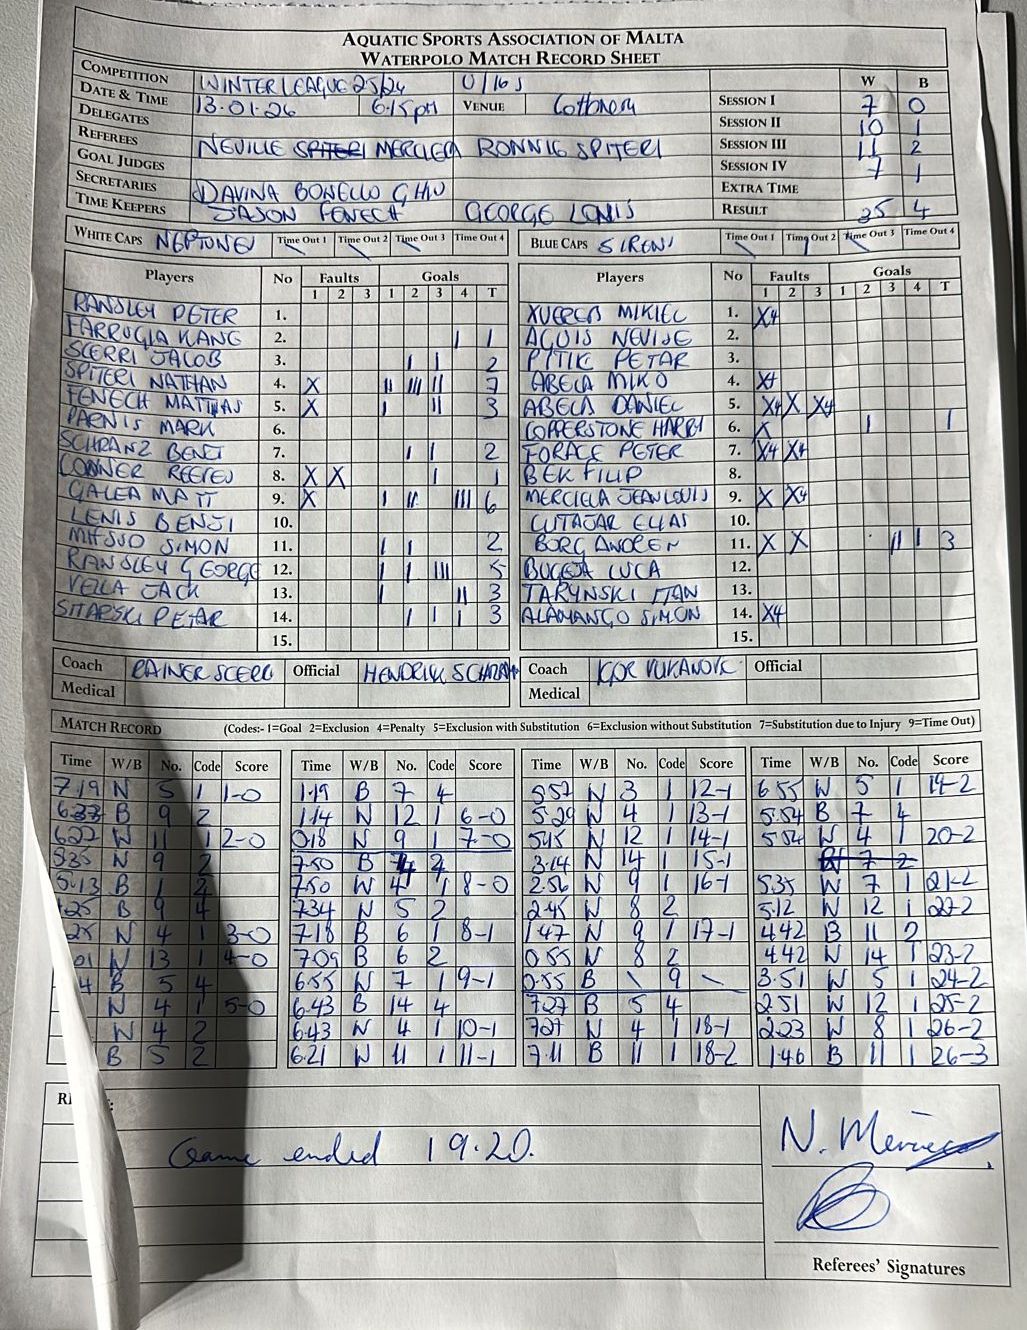 AQUATIC SPORTS ASSOCIATION OF MALTA
WATERPOLO MATCH RECORD SHEET
COMPETITION WINTER LEAGUE 25/26 U/16 S W B
DATE & TIME 13.01.26 6.15pm VENUE Cottonera SESSION I 7 0
DELEGATES SESSION II 10 1
REFEREES NEVILLE MERCIECA RONNIE SPITERI SESSION III 11 2
GOAL JUDGES SESSION IV 7 1
SECRETARIES DAVINA BONELLO EXTRA TIME
TIME KEEPERS JASON FENECH GEORGE LONIS RESULT 35 4
WHITE CAPS NEPTUNES Time Out 1 Time Out 2 Time Out 3 Time Out 4 BLUE CAPS SIRENS Time Out 1 Time Out 2 Time Out 3 Time Out 4
Players No Faults Goals Players No Faults Goals
1 2 3 1 2 3 4 T 1 2 3 1 2 3 4 T
RANSLEY PETER 1. XUEREB MIKIEL 1. X4
FARRUGIA KANG 2. I 1 AGUIS NEVISE 2.
SCERRI JACOB 3. I I 2 PITIC PETAR 3.
SPITERI NATHAN 4. X II III II 7 ABELA MIKO 4. X4
FENECH MATTIAS 5. X I II 3 ABELA DANIEL 5. X4 X X4
PARNIS MARK 6. COPPERSTONE HARRY 6. X I 1
SCHRANZ BENJ 7. I I 2 FORACE PETER 7. X4 X4
CONNER REEFES 8. X X I 1 BEK FILIP 8.
GALEA MATT 9. X I II III 6 MERCIECA JEAN LOUIS 9. X X4
LENIS BENJI 10. CUTAJAR ELIAS 10.
MIFSUD SIMON 11. I I 2 BORG ANDREW 11. X X II I 3
RANSLEY GEORGE 12. I I III 5 BUGEJA LUCA 12.
VELLA JACK 13. I II 3 TARYNSKI ITAN 13.
SITARSKI PETAR 14. I I I 3 ALAMANGO SIMON 14. X4
15. 15.
Coach RAINER SCERRI Official HENDRIK SCHRANZ Coach IGOR VUKANOVIC Official
Medical Medical
MATCH RECORD (Codes:- 1=Goal 2=Exclusion 4=Penalty 5=Exclusion with Substitution 6=Exclusion without Substitution 7=Substitution due to Injury 9=Time Out)
Time W/B No. Code Score Time W/B No. Code Score Time W/B No. Code Score Time W/B No. Code Score
7.19 W 5 1 1-0 1.19 B 7 4 5.57 W 3 1 12-1 6.55 W 5 1 19-2
6.33 B 9 2 1.14 W 12 1 6-0 5.29 W 4 1 13-1 5.54 B 7 4
6.22 W 11 1 2-0 0.18 W 9 1 7-0 5.45 W 12 1 14-1 5.54 W 4 1 20-2
5.35 W 9 2 7.50 B 4 3.14 W 14 1 15-1 7 2
5.13 B 1 2 7.50 W 4 1 8-0 2.56 W 9 1 16-1 5.35 W 7 1 21-2
.25 B 9 4 7.34 W 5 2 2.45 W 8 2 5.12 W 12 1 22-2
.25 W 4 1 3-0 7.18 B 6 1 8-1 1.47 W 9 1 17-1 4.42 B 11 2
.01 W 13 1 4-0 7.09 B 6 2 0.55 W 8 2 4.42 W 14 1 23-2
4 B 5 4 6.55 W 7 1 9-1 0.55 B \ 9 \ 3.51 W 5 1 24-2
W 4 1 5-0 6.43 B 14 4 7.27 B 5 4 2.51 W 12 1 25-2
W 4 2 6.43 W 4 1 10-1 7.27 W 4 1 18-1 2.23 W 8 1 26-2
B 5 2 6.21 W 11 1 11-1 7.11 B 11 1 18-2 1.46 B 11 1 26-3
Game ended 19.20.
N. Mercieca
Referees' Signatures